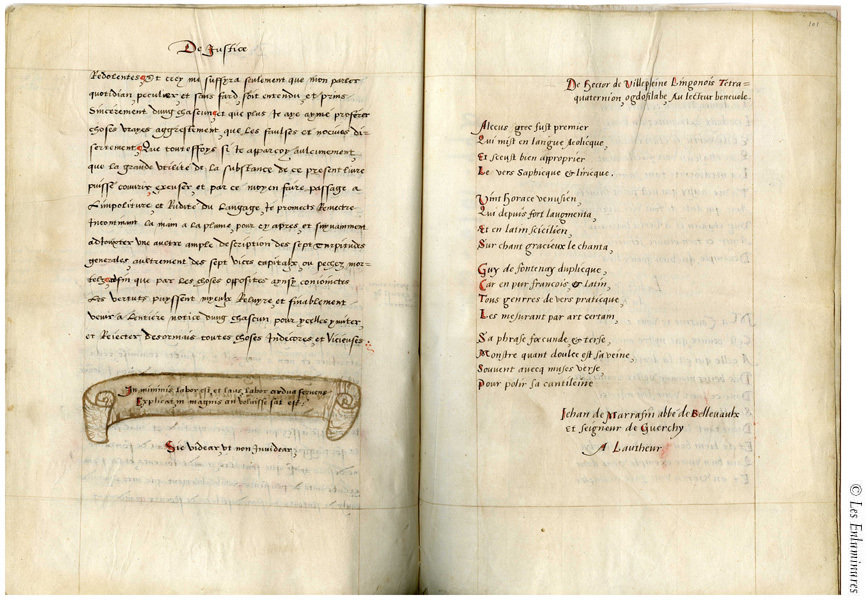 De Justice
Redolentes, Et cecy me suffyra seulement que mon parler
quotidian peculier, et sans fard, soit entendu, et prins
Sincerement dung chascun, et que plus Je aye aymé proferer
choses vrayes aggrestement, que les faulses et nocives di-
sertement, Que touteffoys si te apparcoy aulcunement,
que la grande utilité de la substance de ce present livre
puisse couvrir, excuser, et par ce moyen faire passage a
L'impoliture, et Rudité du Langage, Je promects Remectre
Incontinant la main a la plume, pour cy apres, et suyvamment
adjouxter une aultre ample description des sept Turpitudes
generales, aultrement des sept vices capitaulx, ou pechez mor-
telz, afin que par les choses opposites aynsy conjoinctes
Les vertuts puyssent myeulx Reluyre, et finablement
venir a L'entiere notice dung chascun pour ycelles ymiter,
et Rejecter desormais toutes choses Indecores, et Vicieuses.
In minimis labor est, et laus, labor ardua fervens
Explicat, in magnis an voluisse sat est.
Sic videar, ut non Invidear,
101
De Hector de Villepleine Lingonois Tetra=
quaternion ogdosilabe, Au lecteur benevole.
Alceus grec fust premier
Qui mist en langue Aeolicque,
Et sceust bien approprier
Le vers Saphicque et liricque.
Vint Horace venusien,
Qui depuis fort laugmenta,
Et en latin scicilien,
Sur chant gracieux le chanta,
Guy de fontenay duplicque,
Car en pur francois, et latin,
Tous genrres de vers praticque,
Les mesurant par art certain,
Sa phrase fœcunde, et terse,
Monstre quant doulce est sa veine,
Souvent avecq muses verse,
Pour polir sa cantileine
Jehan de Marrasin abbé de Bellevaulx
Et seigneur de Guerchy
A Lautheur
© Les Enluminures